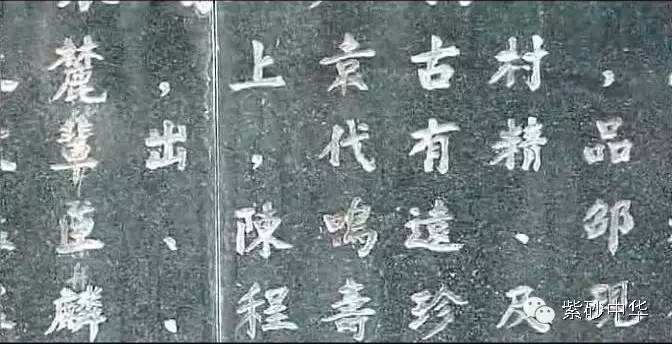 麓，上袁古村，
輩出，代有精品
臣、陳鳴遠、邵
麟、程壽珍及現
紫砂中华